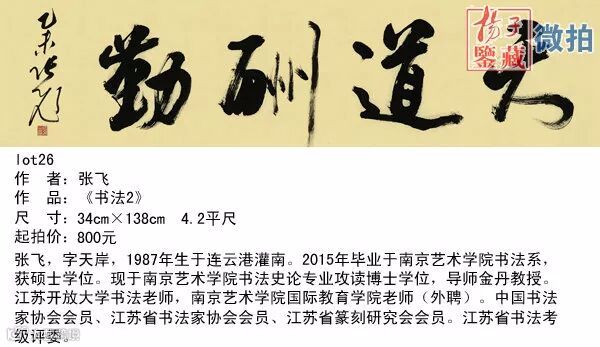 天道酬勤
乙未张飞
扬子
鉴藏
微拍
lot26
作 者：张飞
作 品：《书法2》
尺 寸：34cm×138cm 4.2平尺
起拍价：800元
张飞，字天岸，1987年生于连云港灌南。2015年毕业于南京艺术学院书法系，
获硕士学位。现于南京艺术学院书法史论专业攻读博士学位，导师金丹教授。
江苏开放大学书法老师，南京艺术学院国际教育学院老师（外聘）。中国书法
家协会会员、江苏省书法家协会会员、江苏省篆刻研究会会员。江苏省书法考
级评委。